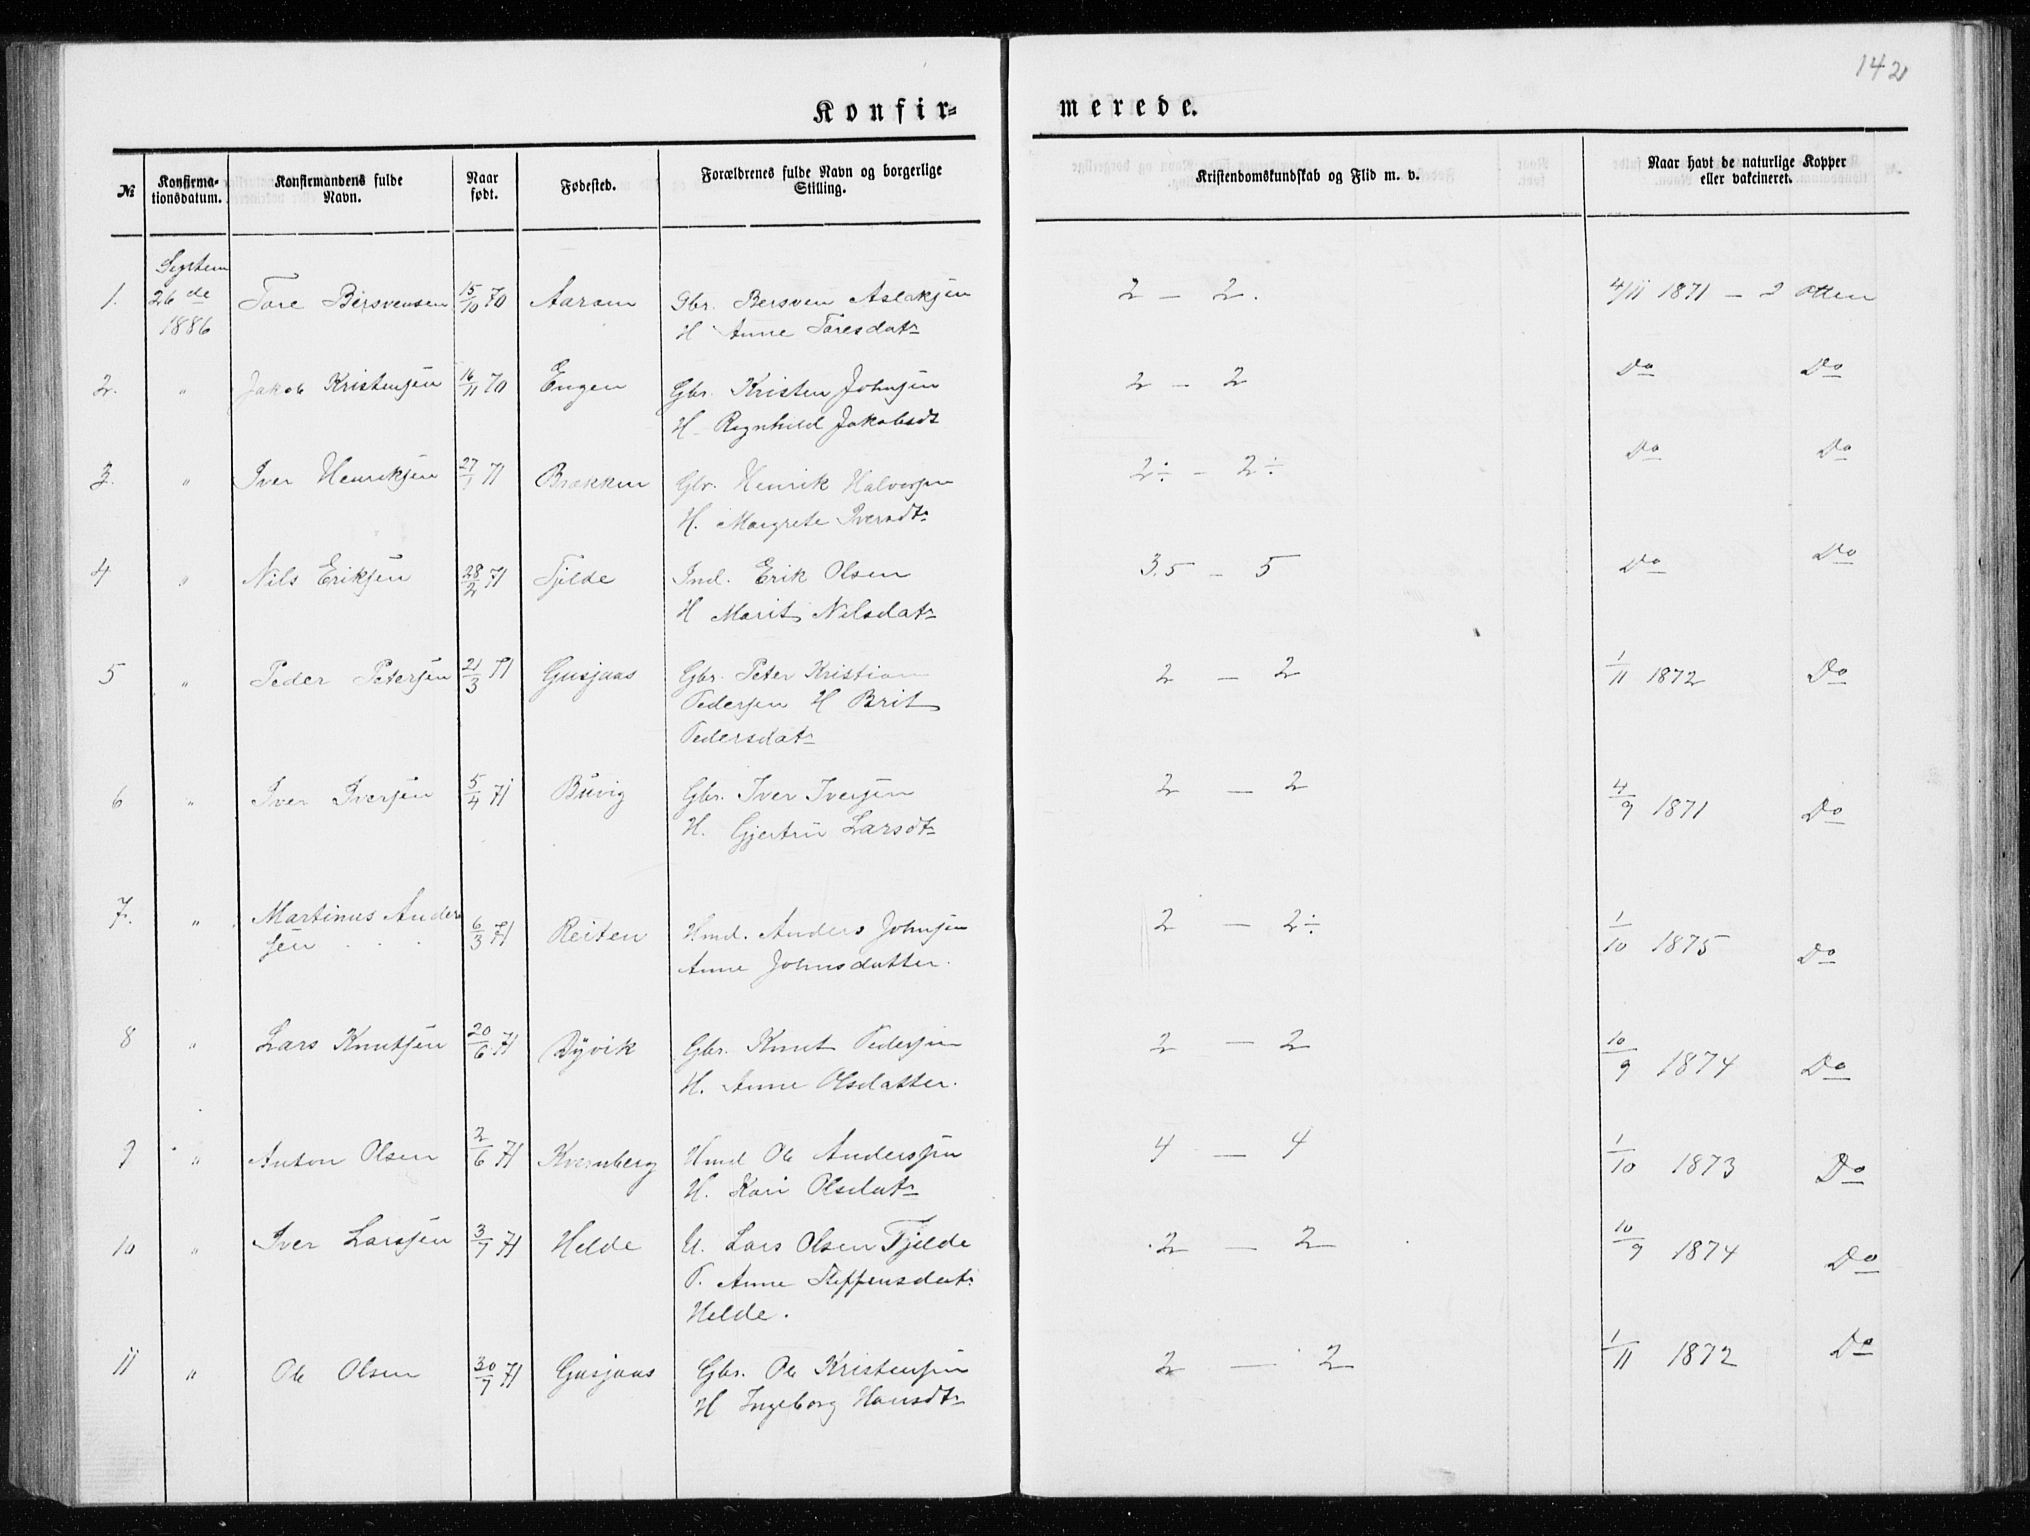 142
Konfir- merede.
№ Konfirma-tionsdatum. Konfirmandens fulde Navn. Naar født. Fødested. Forældrenes fulde Navn og borgerlige Stilling. Kristendomskundskab og Flid m. v. Naar havt de naturlige Kopper eller vakcineret.
Septem
1. 26de Tore Bersvensen 15/10 70 Aaram Gbr. Bersven Aslaksen 2 - 2. 4/11 1871 - J Otten
1886 H Anne Toresdatr
2. " Jakob Kristensen 16/11 70 Engen Gbr. Kristen Johnsen 2 - 2 Do Do
H. Ragnhild Jakobsdt
3. " Iver Henriksen 27/1 71 Brækken Gbr. Henrik Halvorsen 2÷ - 2÷ Do Do
H. Margrete Iversdtr
4 " Nils Eriksen 28/2 71 Tjelde Ind. Erik Olsen 3.5 - 5 Do Do
H Marit Nilsdatr
5 " Peder Petersen 21/3 71 Gusjaas Gbr. Peter Kristian 2 - 2 1/11 1872 Do
Pedersen H Brit
Pedersdatr
6 " Iver Iversen 5/4 71 Buvig Gbr. Iver Iversen 2 - 2 4/9 1871 Do
H. Gjertru Larsdtr
7. " Martinus Ander
sen 6/3 71 Reiten Hmd. Anders Johnsen 2 - 2÷ 1/10 1875 Do
Anne Johnsdatter.
8 " Lars Knutsen 20/6 71 Dyvik Gbr. Knut Pedersen 2 - 2 10/9 1874 Do
H. Anne Olsdatter.
9 " Anton Olsen 2/6 71 Kvernberg Hmd Ole Anderssen 4 - 4 1/10 1873 Do
H. Kari Olsdatr
10 " Iver Larssen 3/7 71 Helde U. Lars Olsen Tjelde 2 - 2 10/9 1874 Do
P. Anne Steffensdatr
Helde.
11 " Ole Olsen 30/7 71 Gusjaas Gbr. Ole Kristensen 2 - 2 1/11 1872 Do
H Ingeborg Hansdtr